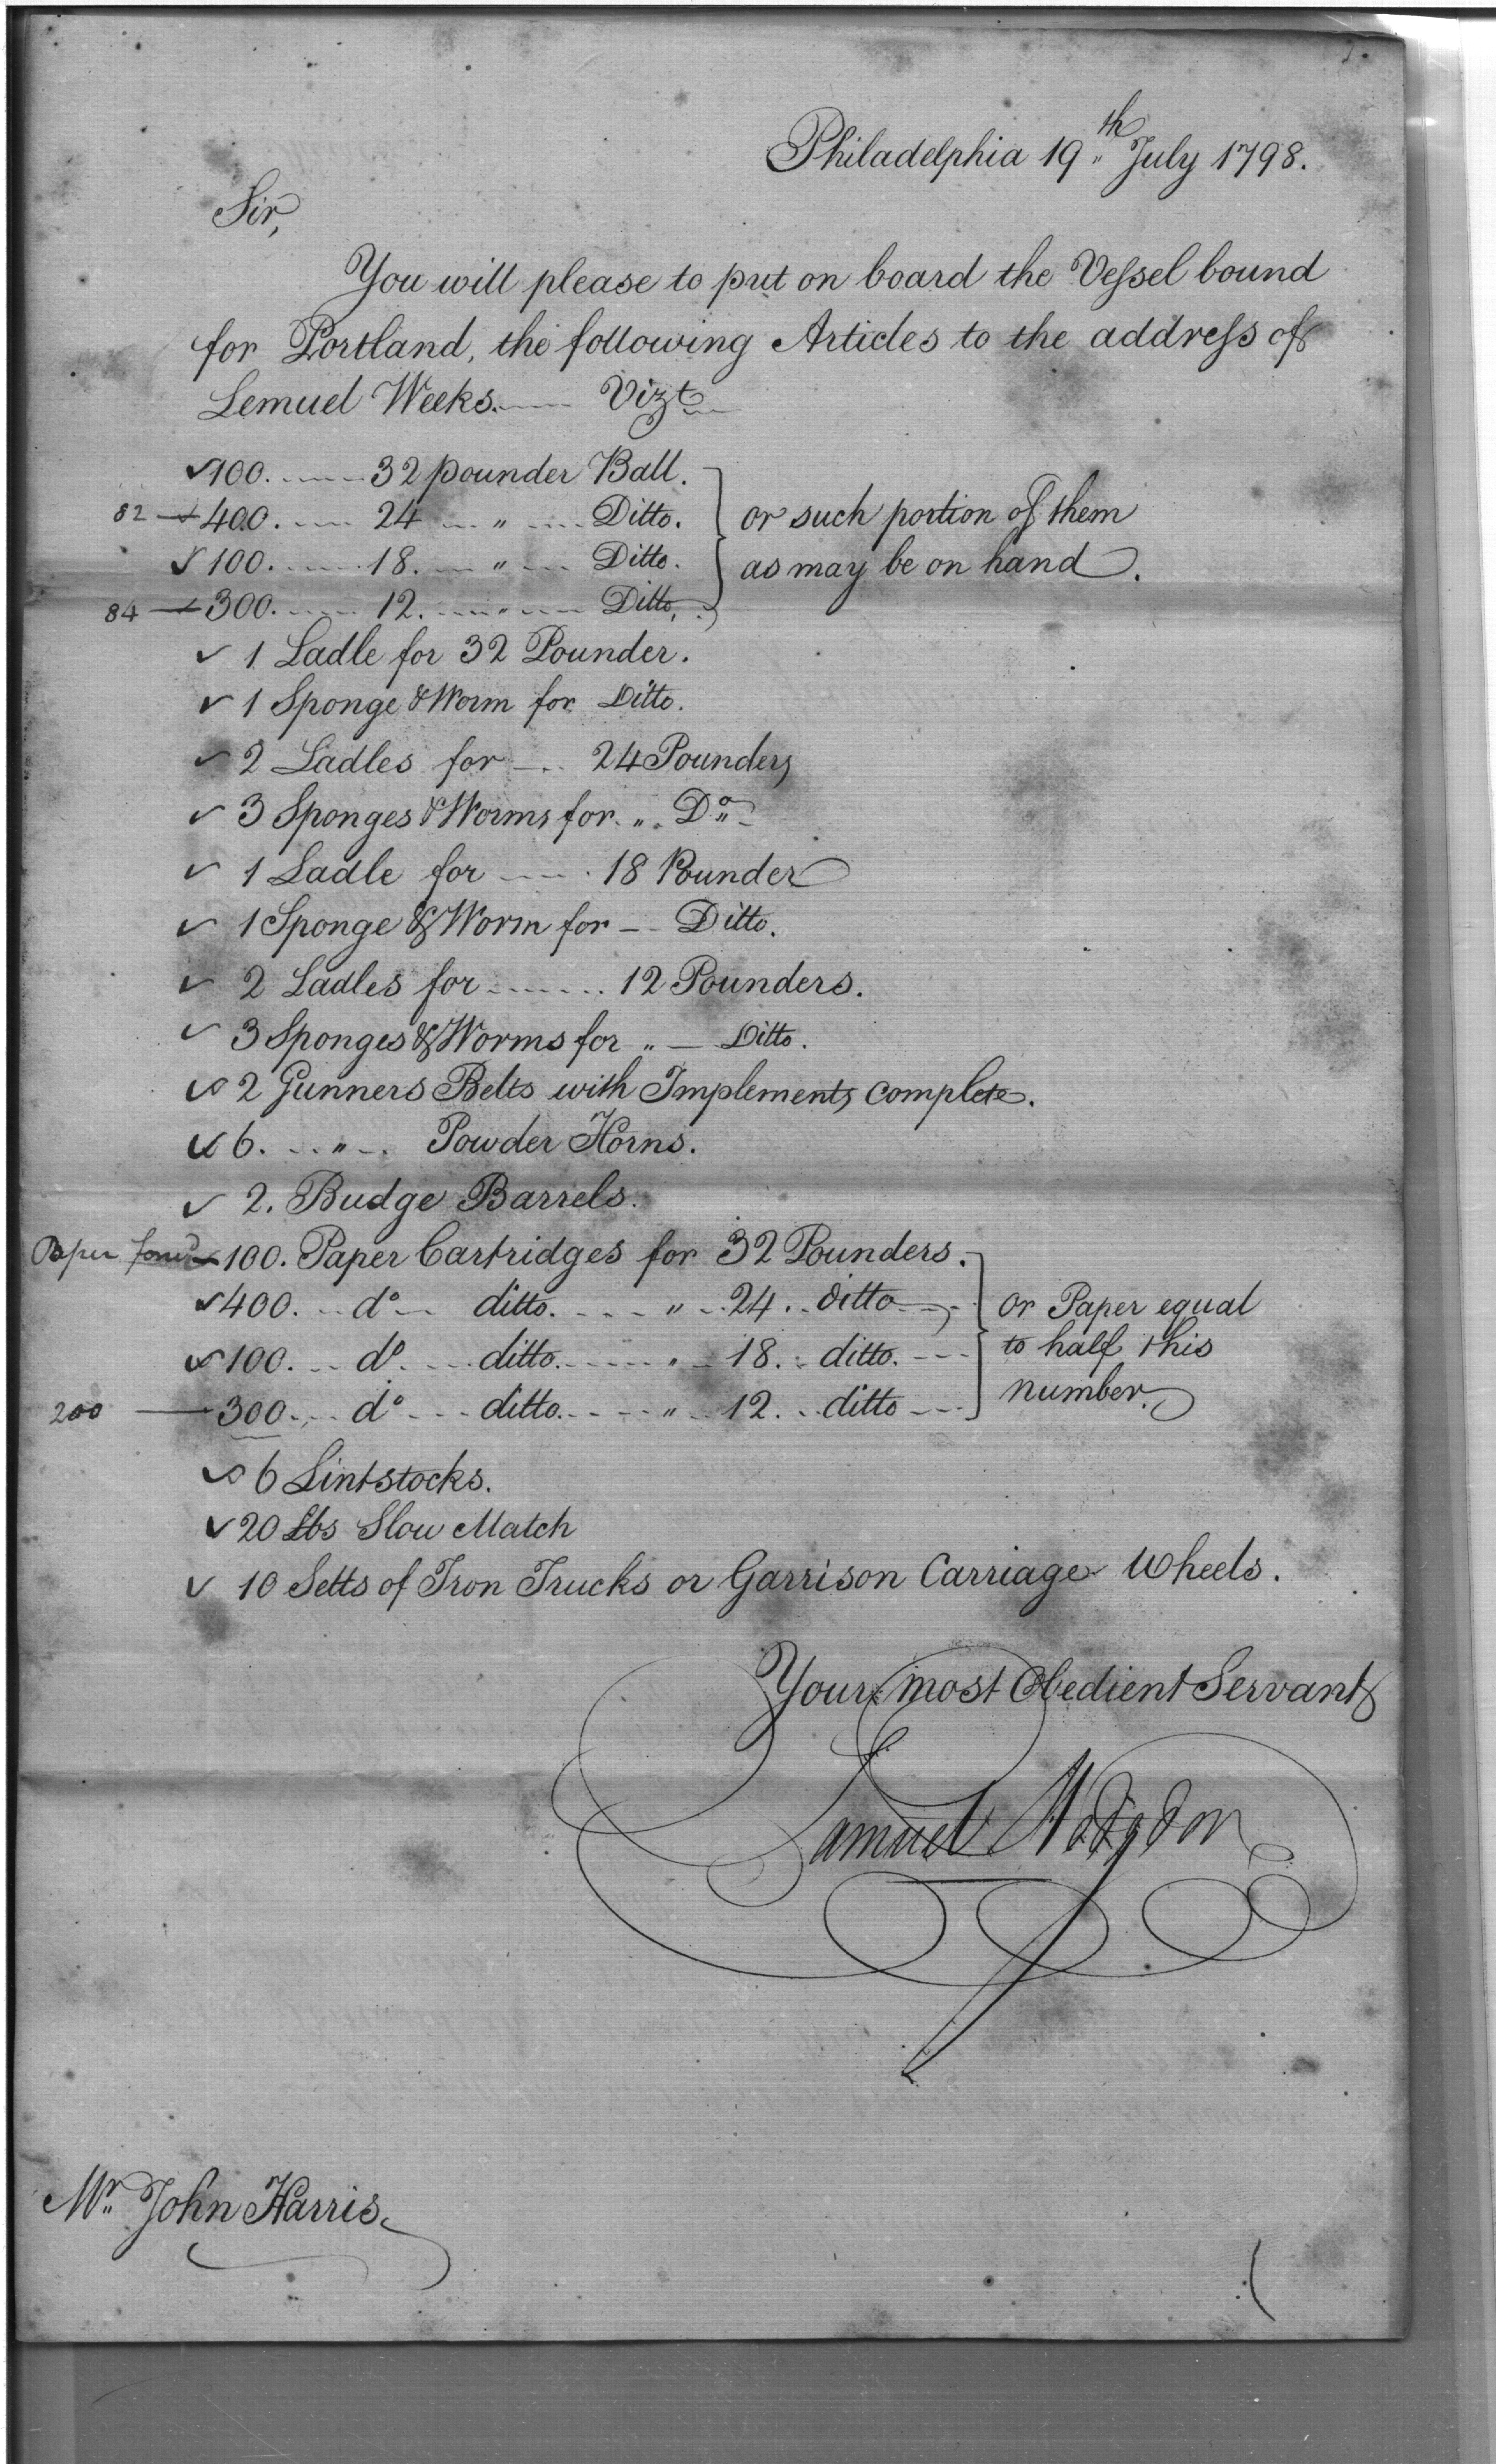 Philadelphia 19th July 1798.
Sir,
You will please to put on board the Vessel bound
for Portland, the following Articles to the address of
Lemuel Weeks. Vizt
✓100. 32 pounder Ball.
82 400. 24 " Ditto. or such portion of them
✓ 100. 18. " Ditto. as may be on hand.
84 300. 12. " Ditto,
✓ 1 Ladle for 32 Pounder.
✓ 1 Sponge & Worm for Ditto.
✓ 2 Ladles for 24 Pounders
✓ 3 Sponges & Worms for " Do
✓ 1 Ladle for 18 Pounder
✓ 1 Sponge & Worm for Ditto.
✓ 2 Ladles for 12 Pounders.
✓ 3 Sponges & Worms for " Ditto.
✓ 2 Gunners Belts with Implements complete.
✓ 6. " Powder Horns.
✓ 2. Budge Barrels.
Paper 100. Paper Cartridges for 32 Pounders.
✓400. do ditto. " 24. ditto or Paper equal
✓100. do ditto. " 18. ditto. to half this
200 300. do ditto. " 12. ditto number.
✓ 6 Lintstocks.
✓ 20 Lbs Slow Match
✓ 10 Setts of Iron Trucks or Garrison Carriage Wheels.
Your most Obedient Servant
Samuel Hodgdon
Mr. John Harris.